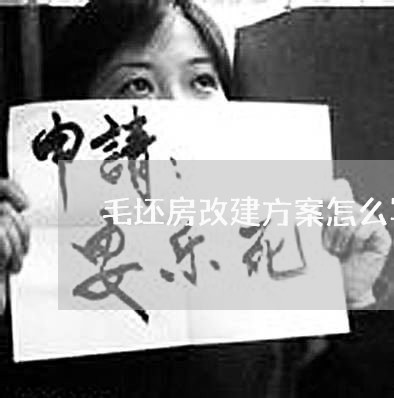 申請：
毛坯房改建方案怎么
安乐死